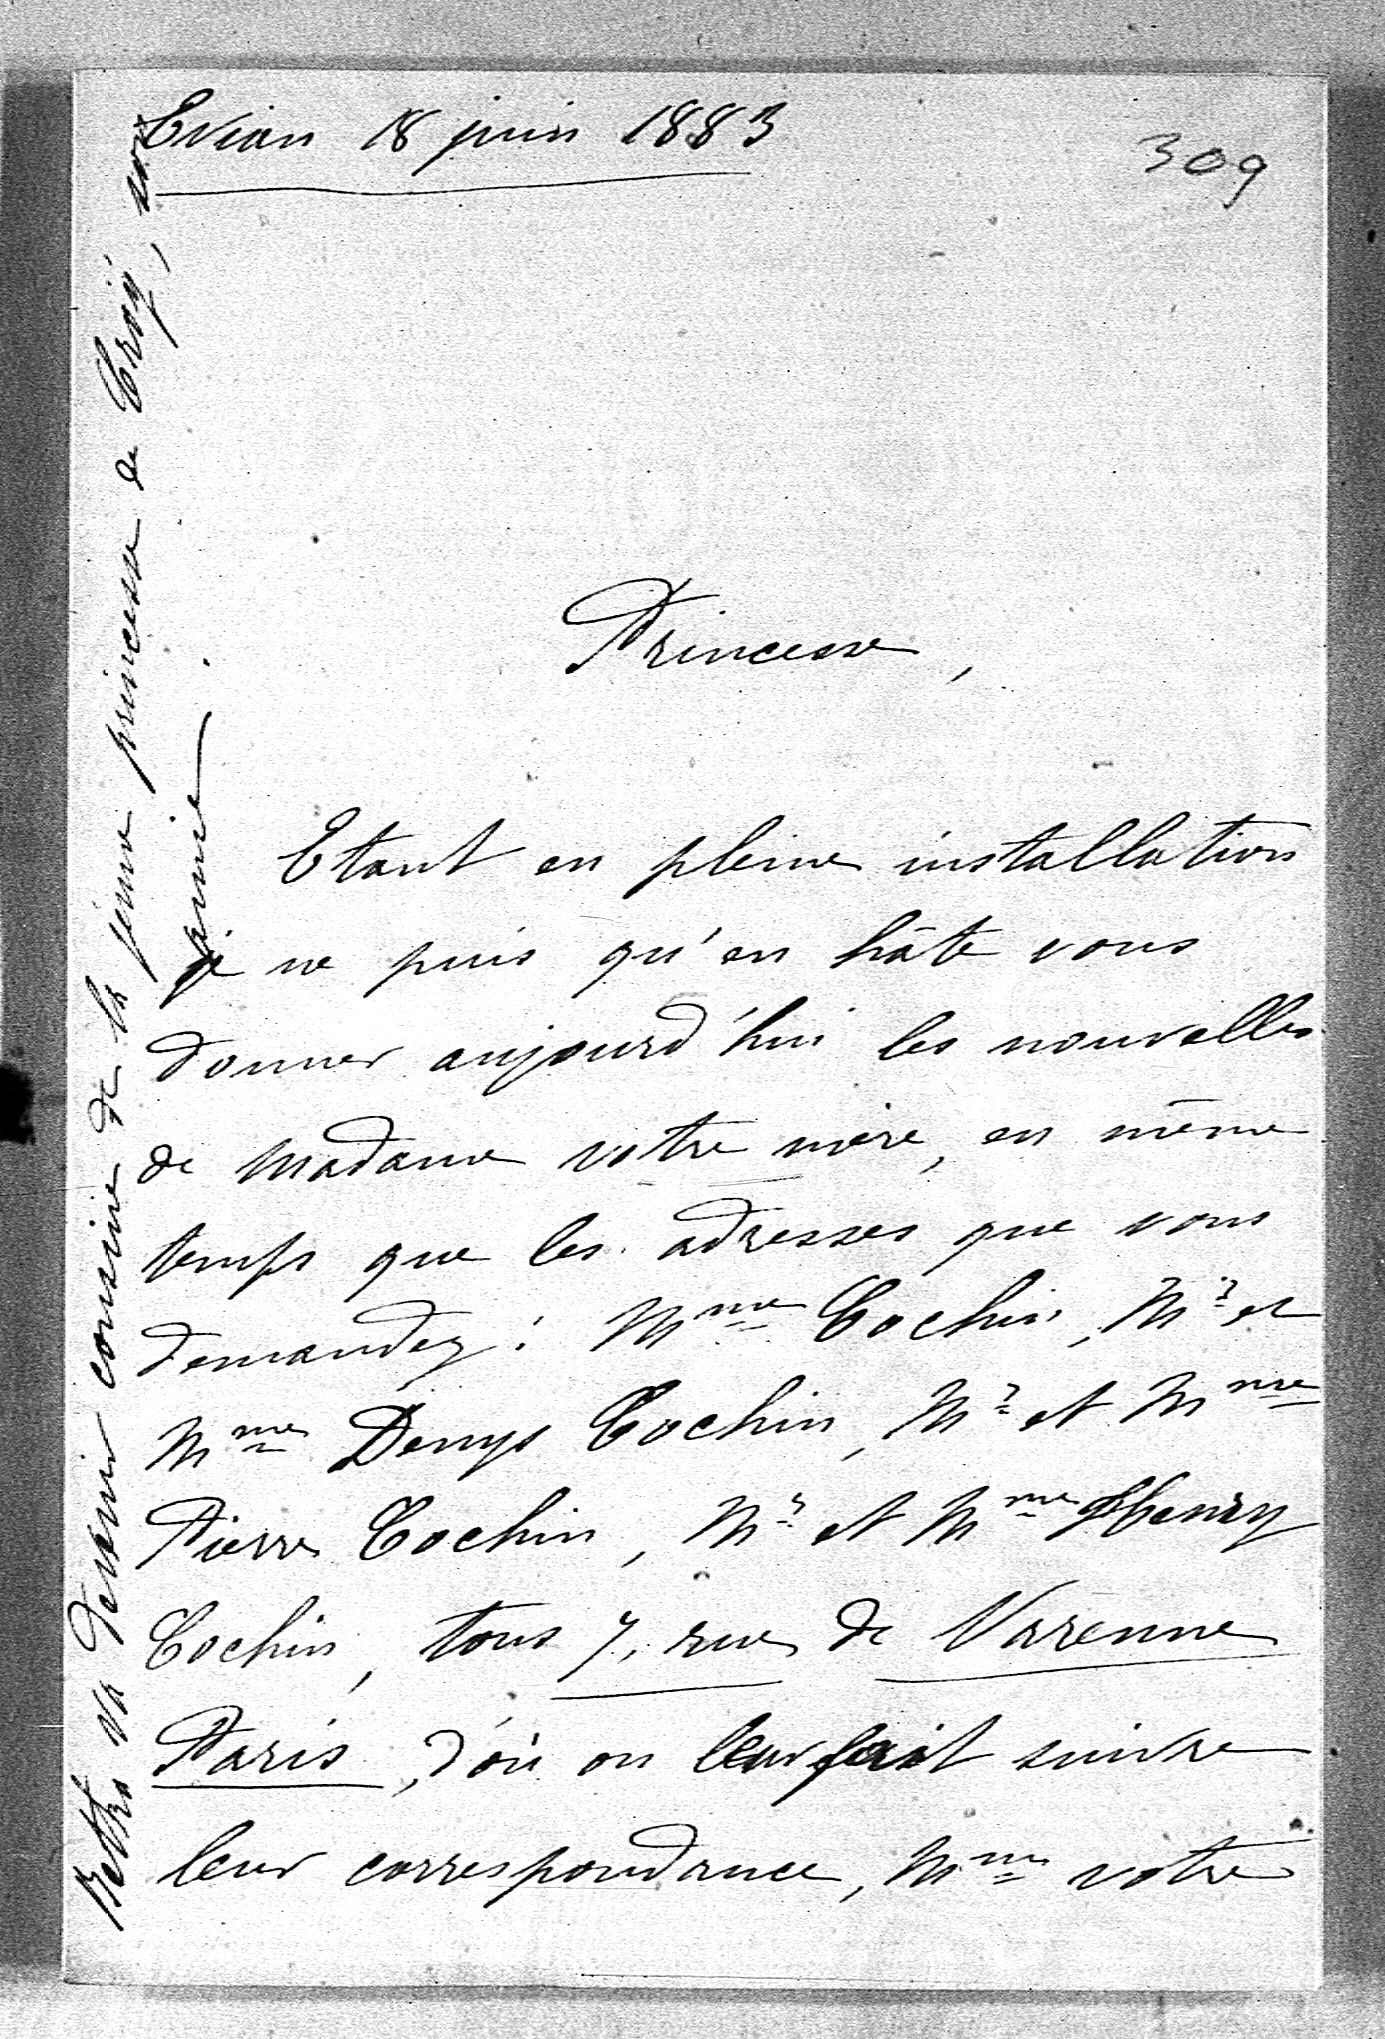 Evian 18 juin 1883
309
Princesse,
Etant en pleine installation
je ne puis qu'en hâte vous
donner aujourd'hui les nouvelles
de Madame votre mère, en même
temps que les adresses que vous
demandez : Mme Cochin, Mr et
Mme Denys Cochin, Mr et Mme
Pierre Cochin, Mr et Mme Henry
Cochin, tous 7, rue de Varenne
Paris, d'où on leur fait suivre
leur correspondance, Mme votre
va devenir cousine de la jeune princesse de Croÿ, son
amie.